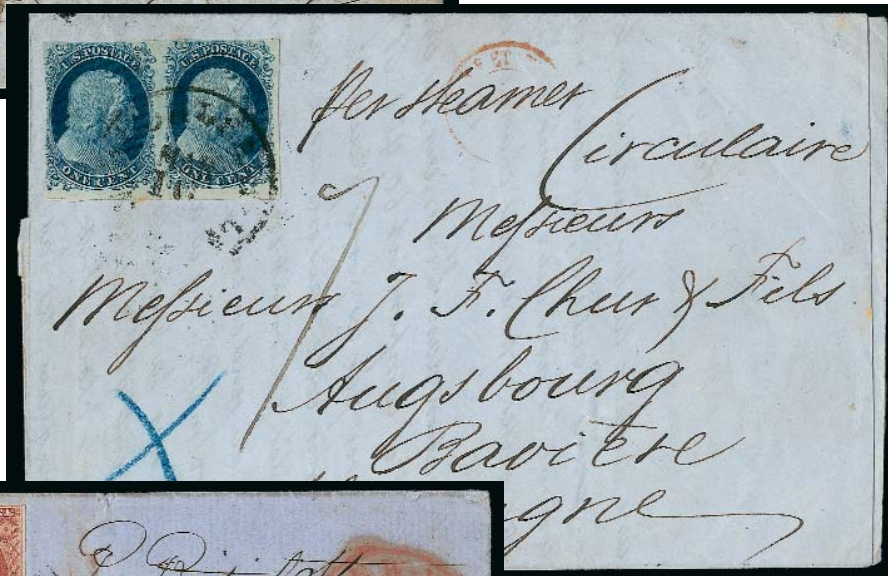 U.S. POSTAGE U.S. POSTAGE
ONE CENT ONE CENT
per steamer
Circulaire
Messieurs
Messieurs J. F. Chur & Fils
Augsbourg
Bavière
gne